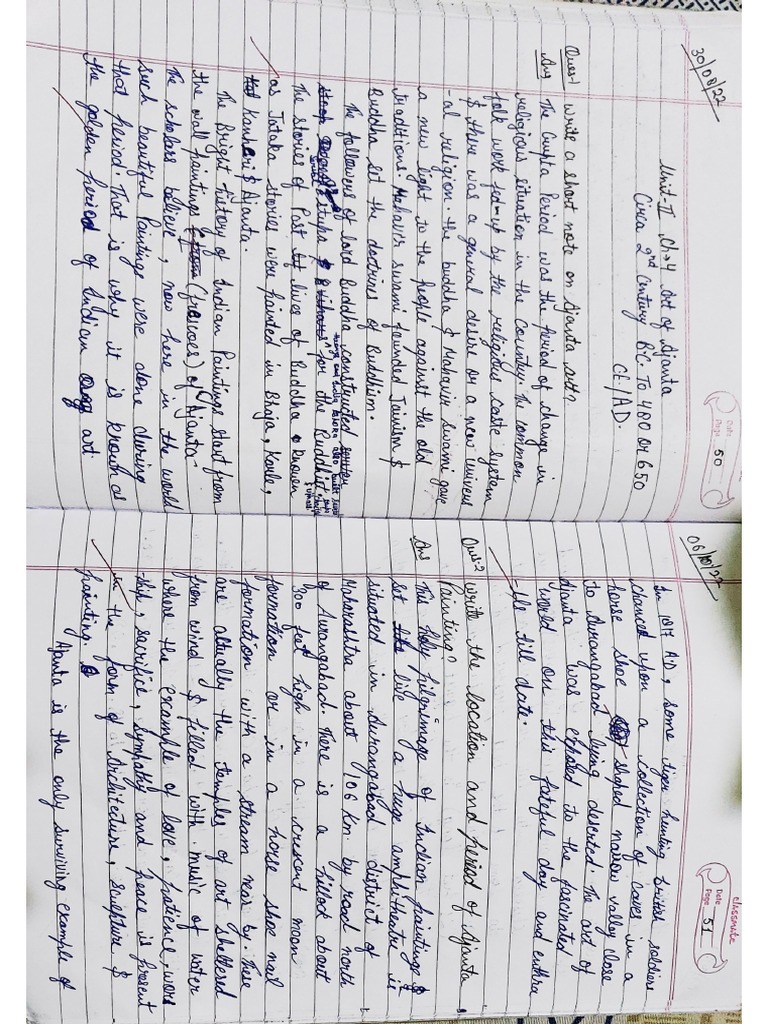 30/08/22
Date
Page 50
Unit-II Ch-4 Art of Ajanta
Circa 2nd Century B.C. To 480 or 650
CE/AD.
Ques-1 write a short note on Ajanta art?
Ans The Gupta Period was the period of change in
religious situation in the Country. the common
folk were fed-up by the religious caste system
& there was a general desire or a new univers
-al religion. the buddha & Mahavir swami gave
a new light to the people against the old
traditions. Mahavir swami founded Jainism &
Buddha let the doctrines of Buddhism.
The followers of lord Buddha constructed
stupa for the Buddhist
The stories of Past lives of Buddha Known
as Jataka stories were painted in Bhaja, Karle,
Kanheri & Ajanta.
The Bright history of Indian Paintings start from
the wall paintings (frescoes) of Ajanta-
The scholars believe, now here in the world
such beautiful Paintings were done during
that period. That is why it is known as
the golden period of Indian art.
06/10/22
classmate
Date
Page 51
In 1817 A.D, some tiger hunting british soldiers
chanced upon a collection of caves in a
horse shoe shaped narrow valley close
to Aurangabad lying deserted. The art of
Ajanta was exposed to the fascinated
world on this fateful day and enthra
-lls till date.
Ques-2 write the location and period of Ajanta
Painting?
Ans This holy pilgrimage of Indian paintings
set like a huge amphitheatre is
situated in Aurangabad district of
Maharashtra about 106 Km. by road north
of Aurangabad. There is a hillock about
300 feet high in a crescent moon
formation or in a horse shoe nail
formation with a stream near by. These
are actually the temples of art sheltered
from wind & filled with music of water
where the example of love, patience, wor
ship, sacrifice, sympathy and peace is present
in the form of Architecture, sculpture &
painting.
Ajanta is the only surviving example of